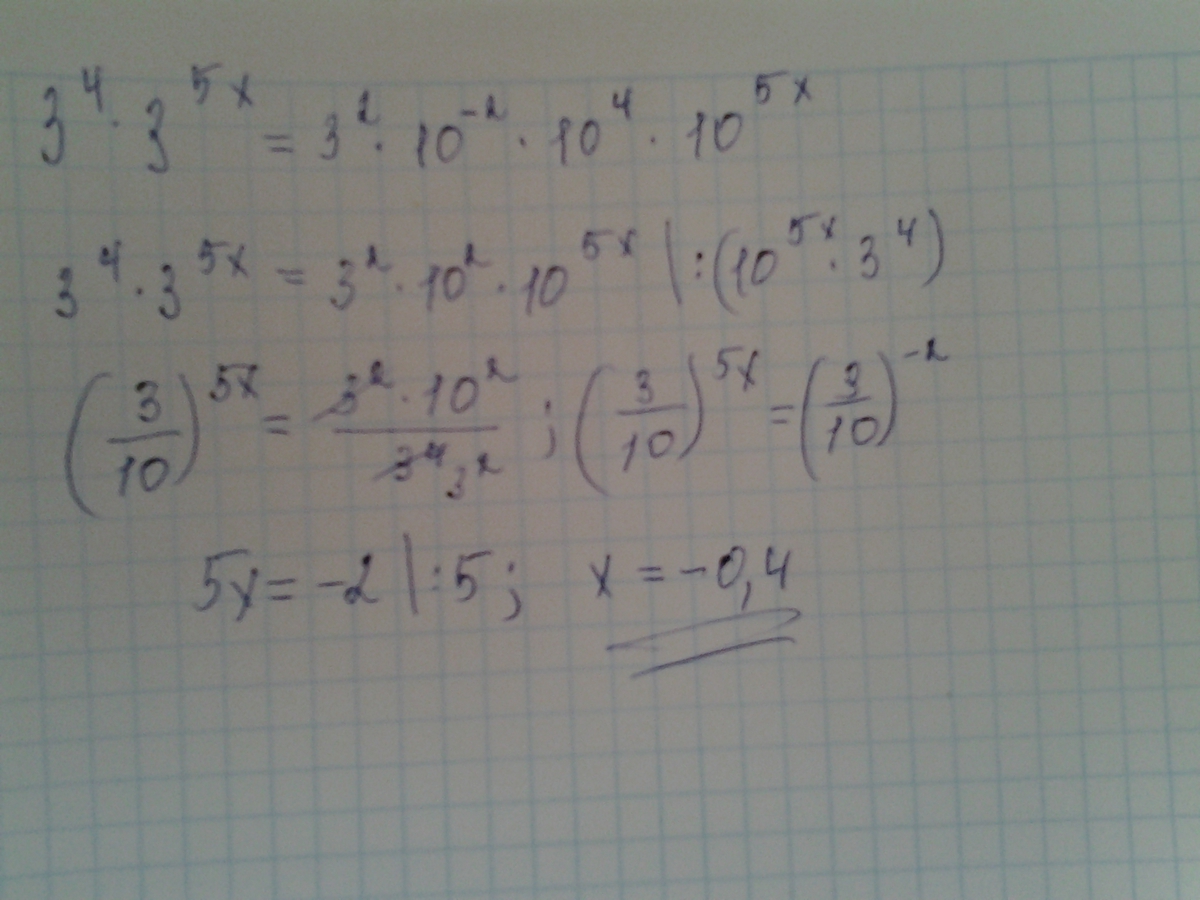 3⁴ · 3⁵ˣ = 3² · 10⁻² · 10⁴ · 10⁵ˣ
3⁴ · 3⁵ˣ = 3² · 10² · 10⁵ˣ | : (10⁵ˣ · 3⁴)
(3/10)⁵ˣ = (3² · 10²)/(3⁴ 3²) ; (3/10)⁵ˣ = (3/10)⁻²
5x = -2 | : 5 ; x = -0,4